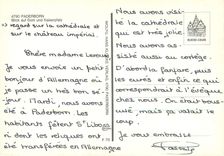 4790 PADERBORN
Blick auf Dom und Kaiserpfalz
« regard sur la cathédrale et
sur le château impérial.
Chère madame
Je vous envoie un petit
bonjour d'Allemagne où
je passe un très bon sé-
jour. Mardi, nous avons
été à Paderborn. Les
habitants fêtent St Libori
dont les reliques ont
été transférées en Allemagne
Nous avons visité
la cathédrale
qui est très jolie.
Nous avons as-
sisté aussi au cortège.
D'abord la fanfare, puis
les curés et enfin ce qui
correspondrait à l'évêque
chez nous. On était en-
tassé mais ça valait le
coup.
Je vous embrasse